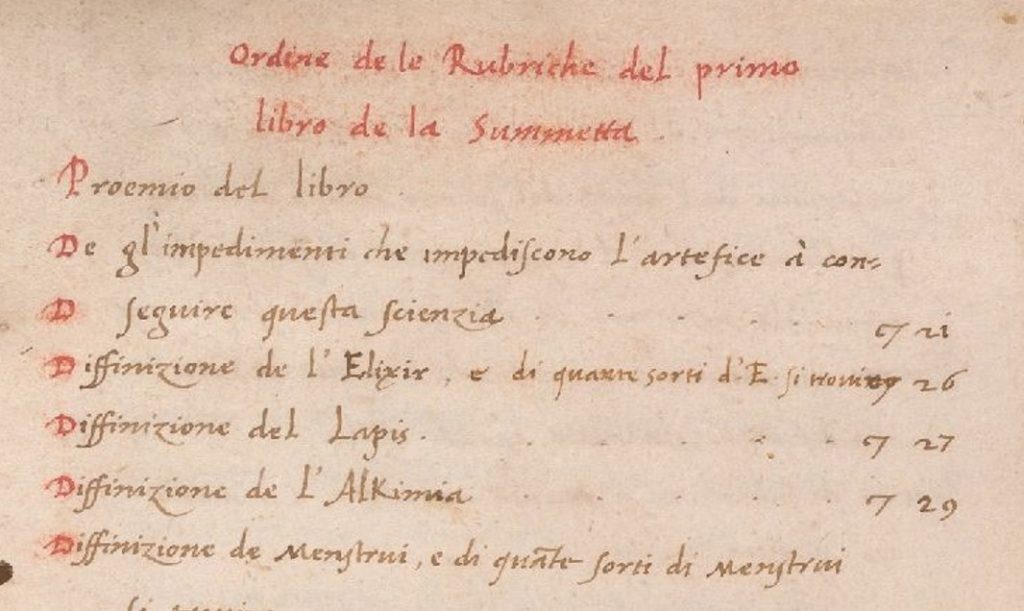 Ordine de le Rubriche del primo
libro de la Summetta.
Proemio del libro
De gl'impedimenti che impediscono l'artefice à con-
D seguire questa scienzia . . . . . c7 21
Diffinizione de l'Elixir, e di quante sorti d'E. si trovino 26
Diffinizione del Lapis. . . . . . c7 27
Diffinizione de l'Alkimia . . . . . 7 29
Diffinizione de Menstrui, e di quãte sorti di Menstrui
si